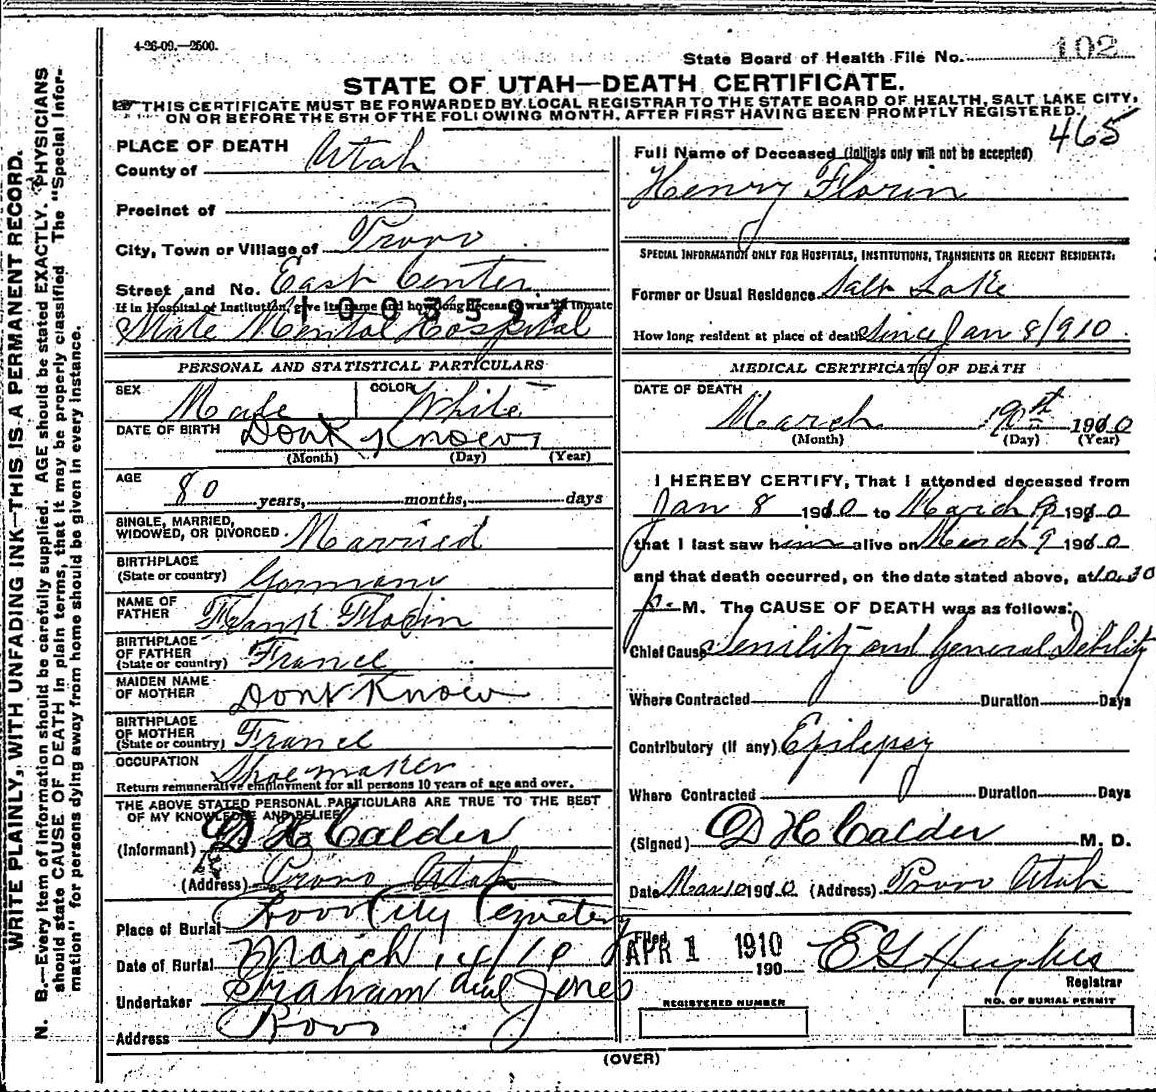 4-26-09.—2500.
State Board of Health File No. 102
STATE OF UTAH—DEATH CERTIFICATE.
THIS CERTIFICATE MUST BE FORWARDED BY LOCAL REGISTRAR TO THE STATE BOARD OF HEALTH, SALT LAKE CITY,
ON OR BEFORE THE 5TH OF THE FOLLOWING MONTH, AFTER FIRST HAVING BEEN PROMPTLY REGISTERED.
465
PLACE OF DEATH
County of Utah
Precinct of
City, Town or Village of Provo
Street and No. East Center
If in Hospital or Institution, give its name and how long deceased was an inmate
1003597
State Mental Hospital
PERSONAL AND STATISTICAL PARTICULARS
SEX Male COLOR White
DATE OF BIRTH Dont Know
(Month) (Day) (Year)
AGE 80 years, months, days
SINGLE, MARRIED,
WIDOWED, OR DIVORCED. Married
BIRTHPLACE
(State or country) Germany
NAME OF
FATHER Frank Florin
BIRTHPLACE
OF FATHER
(State or country) France
MAIDEN NAME
OF MOTHER Dont Know
BIRTHPLACE
OF MOTHER
(State or country) France
OCCUPATION Shoemaker
Return remunerative employment for all persons 10 years of age and over.
THE ABOVE STATED PERSONAL PARTICULARS ARE TRUE TO THE BEST
OF MY KNOWLEDGE AND BELIEF
(Informant) D H Calder
(Address) Provo Utah
Place of Burial Provo City Cemetery
Date of Burial March 14/10
Undertaker Graham and Jones
Address Provo
Full Name of Deceased (Initials only will not be accepted)
Henry Florin
SPECIAL INFORMATION ONLY FOR HOSPITALS, INSTITUTIONS, TRANSIENTS OR RECENT RESIDENTS:
Former or Usual Residence Salt Lake
How long resident at place of death Since Jan 8/910.
MEDICAL CERTIFICATE OF DEATH
DATE OF DEATH
March 9th 1910
(Month) (Day) (Year)
I HEREBY CERTIFY, That I attended deceased from
Jan 8 1910 to March 9 1910
that I last saw him alive on March 9 1910
and that death occurred, on the date stated above, at 10.30
p. M. The CAUSE OF DEATH was as follows:
Chief Cause Senility and General Debility
Where Contracted Duration Days
Contributory (if any) Epilepsy
Where Contracted Duration Days
(Signed) D H Calder M. D.
Date Mar 10 1910 (Address) Provo Utah
Filed APR 1 1910
190 E G Hughes
Registrar
REGISTERED NUMBER
NO. OF BURIAL PERMIT
(OVER)
WRITE PLAINLY, WITH UNFADING INK—THIS IS A PERMANENT RECORD.
N. B.—Every item of information should be carefully supplied. AGE should be stated EXACTLY. PHYSICIANS
should state CAUSE OF DEATH in plain terms, that it may be properly classified. The "Special Infor-
mation" for persons dying away from home should be given in every instance.